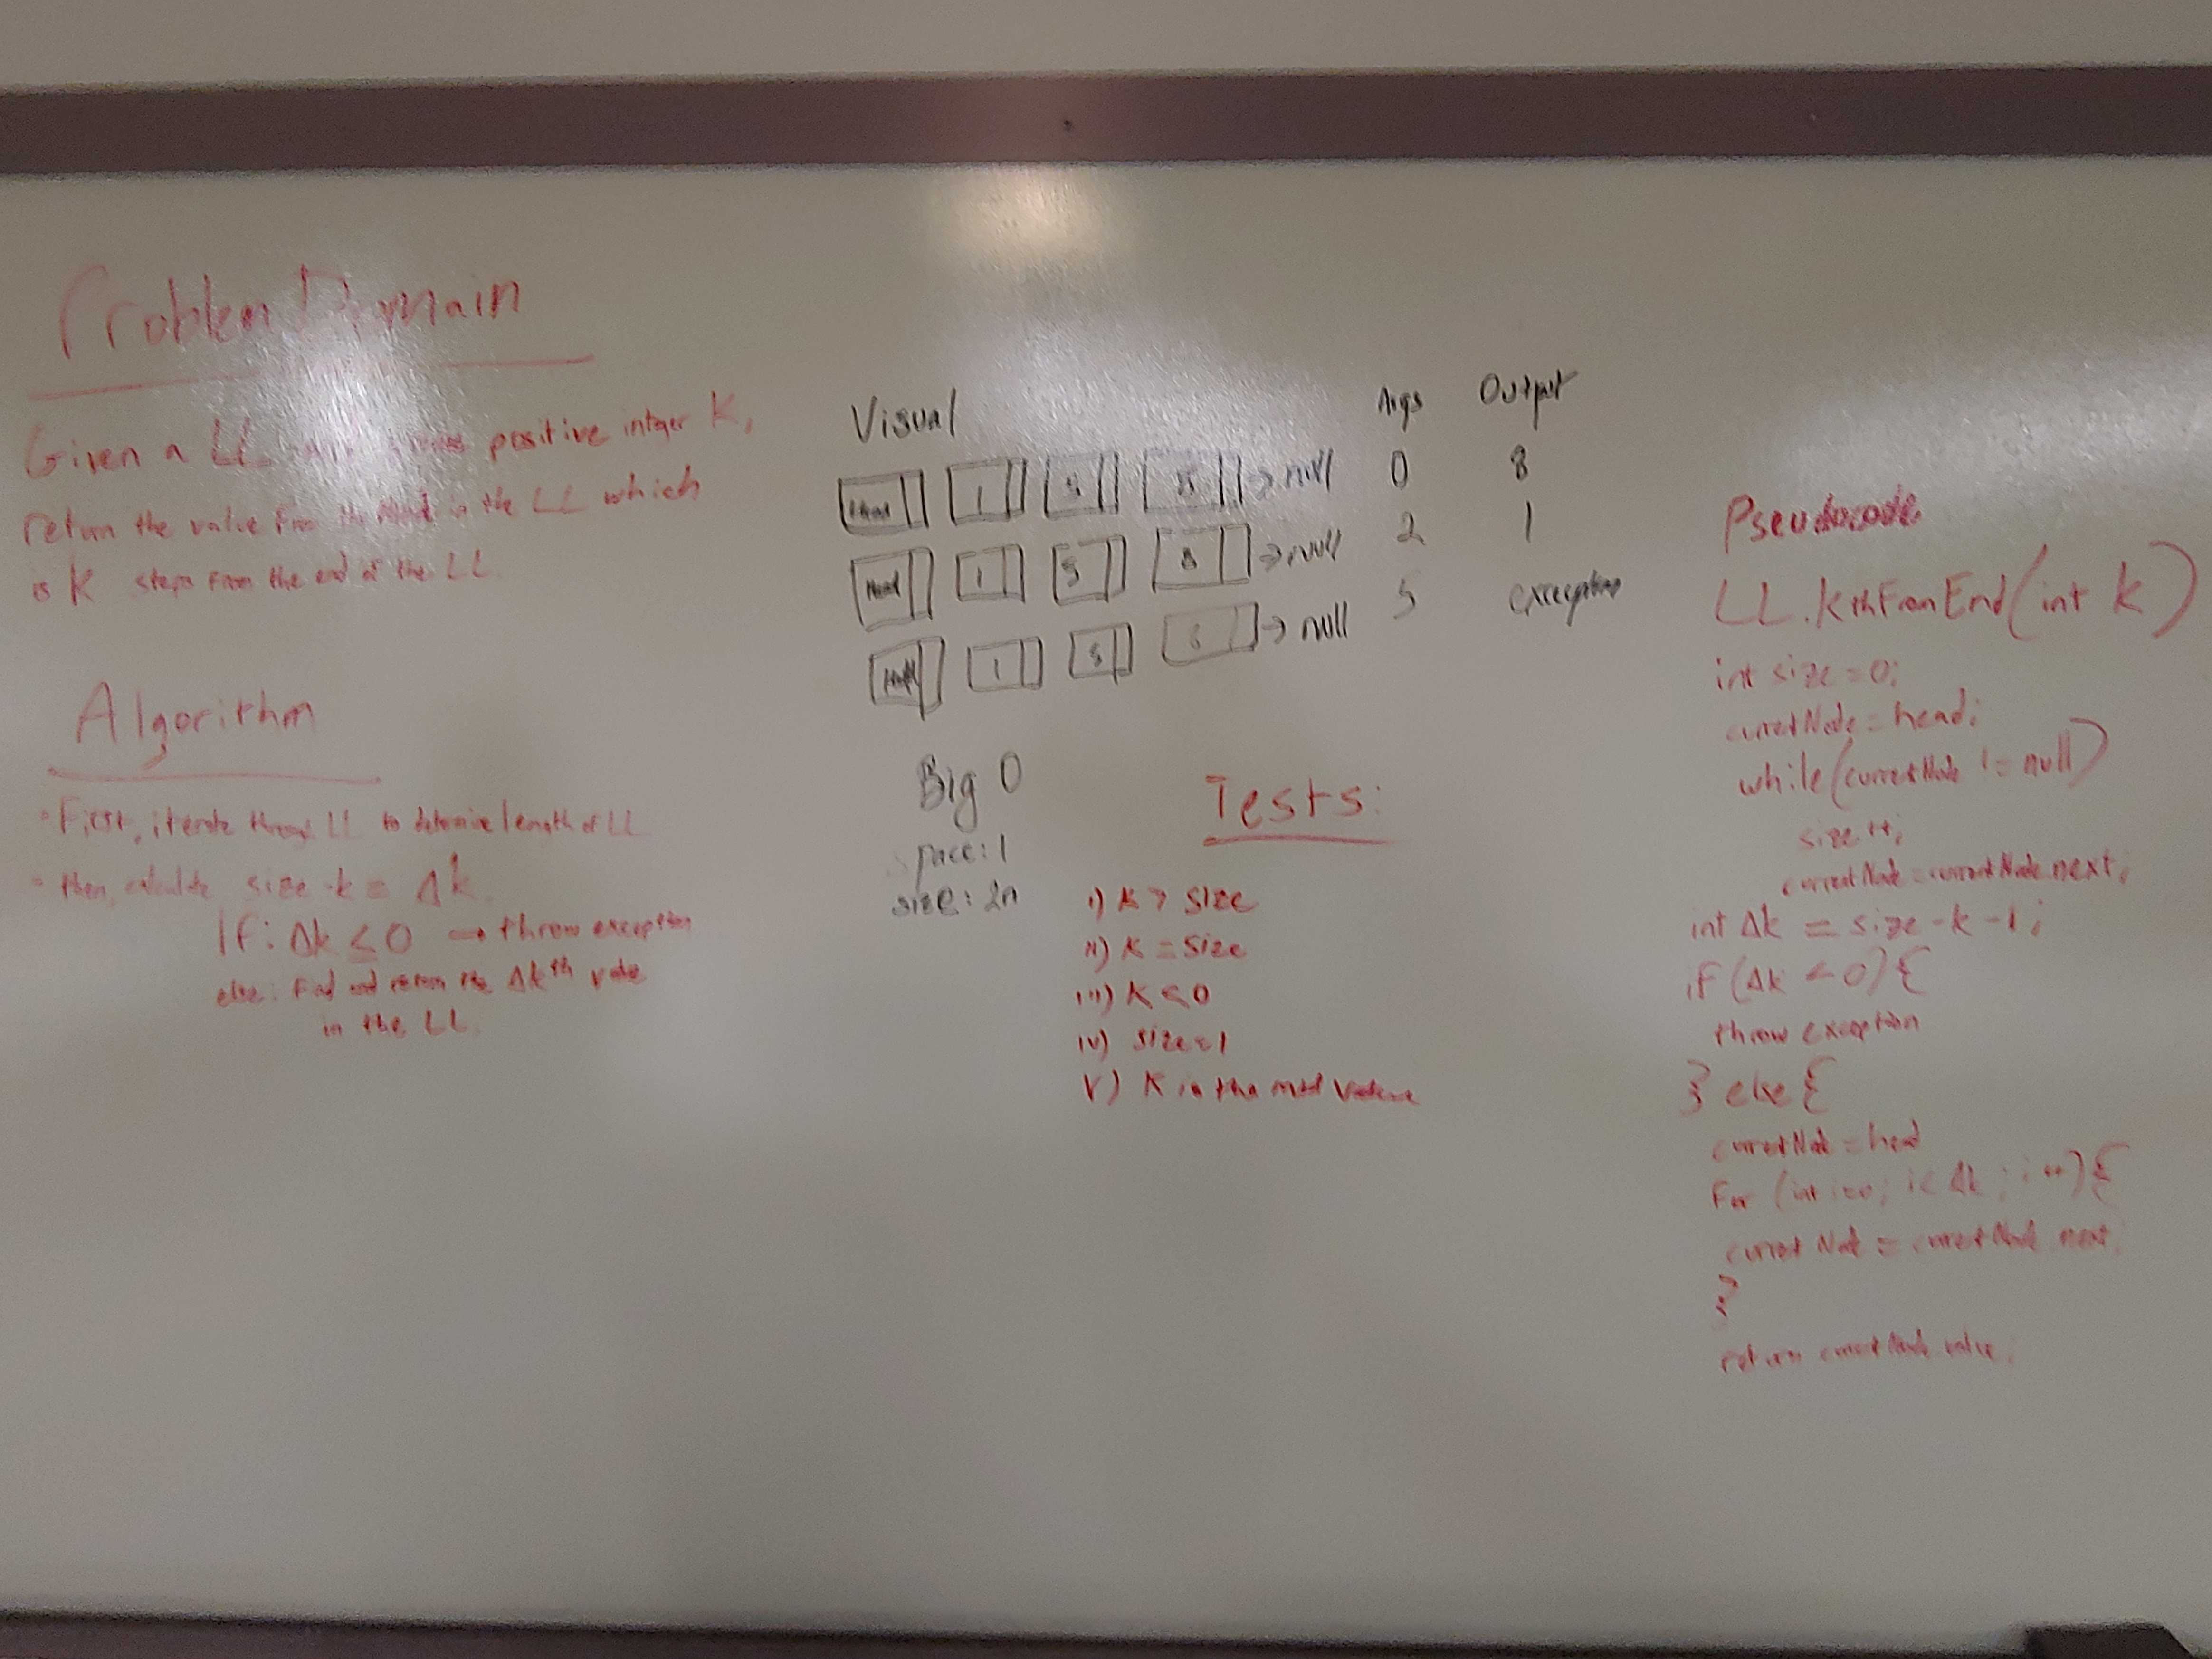 Problem Domain
Given a LL and positive integer K,
return the value from the in the LL which
is K steps from the end of the LL
Algorithm
First, iterate through LL to determine length of LL
then, calculate size - k = Δk
If: Δk ≤ 0 → throw exception
else: Find and return the Δkth value
in the LL.
Visual Args Output
Head 1 5 8 → null 0 8
Head 1 5 8 → null 2 1
Head 1 5 8 → null 5 exception
Big O
space: 1
size: 2n
Tests:
i) K > Size
ii) K = Size
iii) K < 0
iv) size = 1
v) K is the mid
Pseudocode
LL.KthFromEnd(int K)
int size = 0;
currentNode = head;
while(currentNode != null)
size++;
currentNode = currentNode.next;
int Δk = size - k - 1;
if (Δk < 0) {
throw exception
} else {
currentNode = head
For (int i=0; i < Δk; i++) {
current Node = currentNode.next;
}
return currentNode.value;